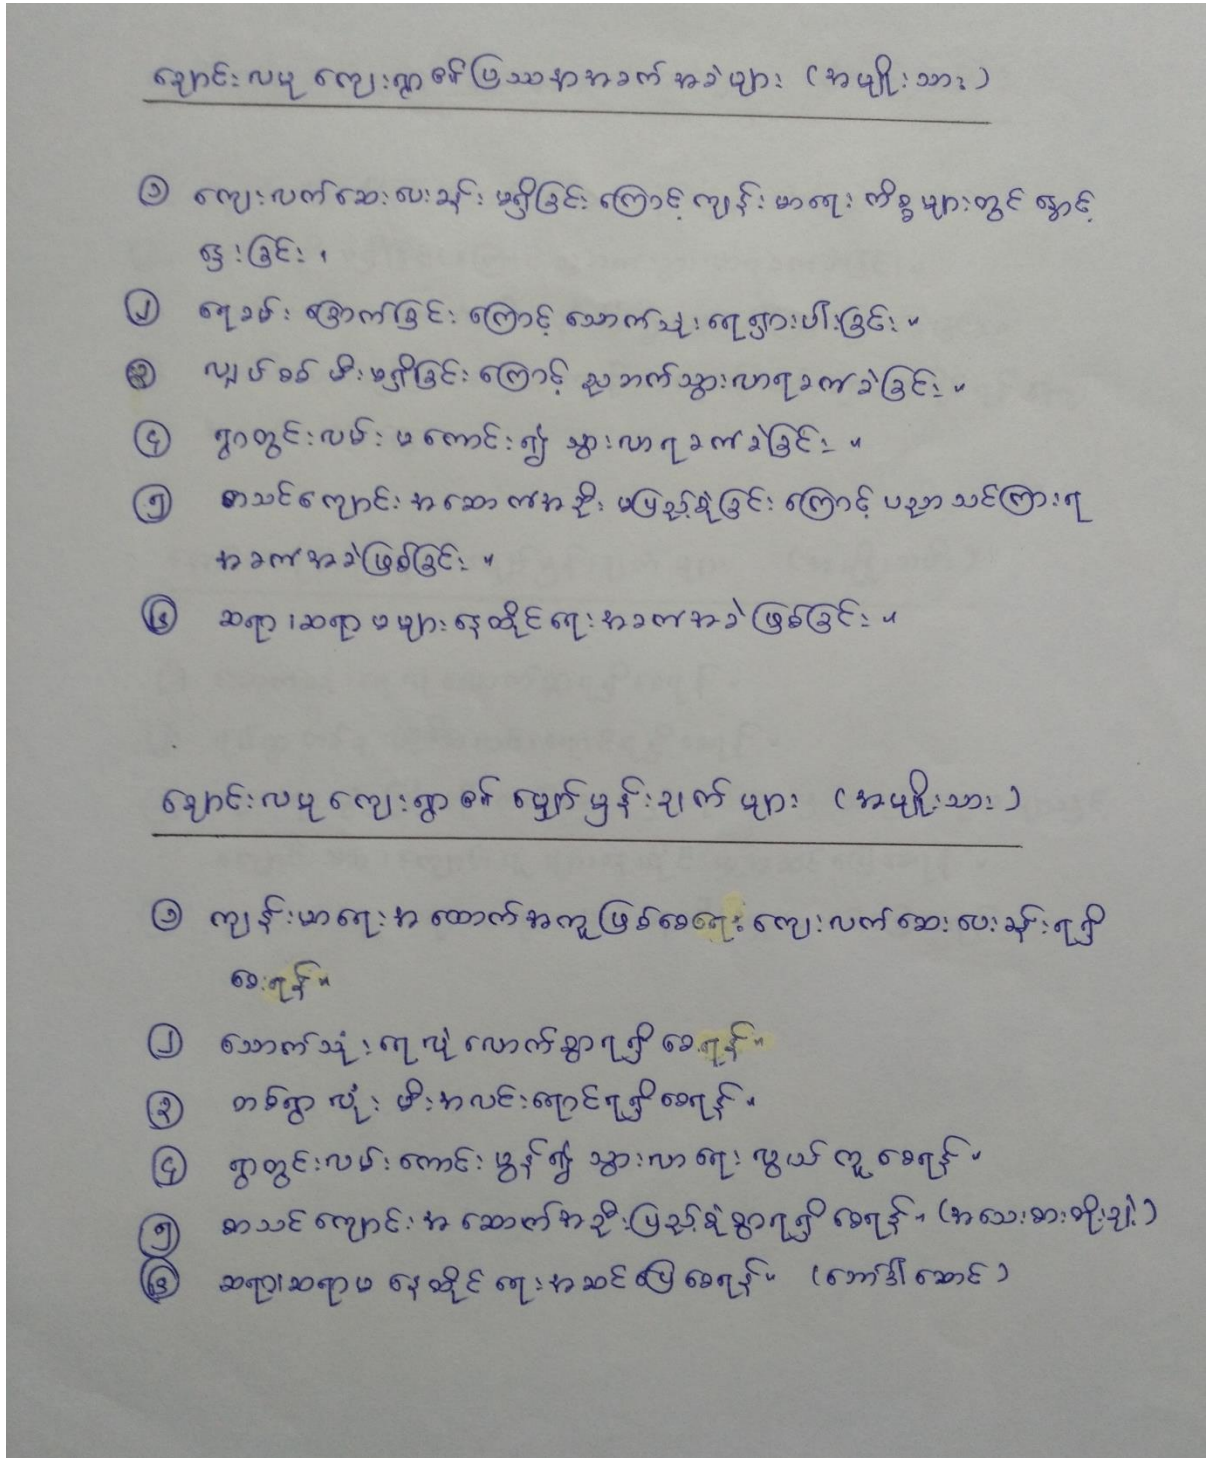 ချောင်းလမု ကျေးရွာ၏ ပြဿနာအခက်အခဲများ (အမျိုးသား)
၁ ကျေးလက်ဆေးပေးခန်း မရှိခြင်းကြောင့် ကျန်းမာရေး ကိစ္စများတွင် နှောင့်
နှေးခြင်း ၊
၂ ရေခမ်း ခြောက်ခြင်းကြောင့် သောက်သုံးရေရှားပါးခြင်း ။
၃ လျှပ်စစ် မီးမရှိခြင်းကြောင့် ညဘက်သွားလာရခက်ခဲခြင်း ။
၄ ရွာတွင်းလမ်း မကောင်း၍ သွားလာရခက်ခဲခြင်း ။
၅ စာသင်ကျောင်းအဆောက်အဦး မပြည့်စုံခြင်းကြောင့် ပညာသင်ကြားရ
အခက်အခဲဖြစ်ခြင်း ။
၆ ဆရာ၊ဆရာမများနေထိုင်ရေးအခက်အခဲဖြစ်ခြင်း ။
ချောင်းလမု ကျေးရွာ၏ မျှော်မှန်းချက်များ (အမျိုးသား)
၁ ကျန်းမာရေးအထောက်အကူဖြစ်စေရေး ကျေးလက်ဆေးပေးခန်းရရှိ
စေရန်။
၂ သောက်သုံးရေလုံလောက်စွာရရှိစေရန်။
၃ တစ်ရွာလုံး မီးအလင်းရောင်ရရှိစေရန်။
၄ ရွာတွင်းလမ်းကောင်းမွန်၍ သွားလာရေးလွယ်ကူစေရန်။
၅ စာသင်ကျောင်းအဆောက်အဦးပြည့်စုံစွာရရှိစေရန်။ (အသေးစားတိုးချဲ့)
၆ ဆရာ၊ဆရာမ နေထိုင်ရေးအဆင်ပြေစေရန်။ (ဘော်ဒါဆောင်)